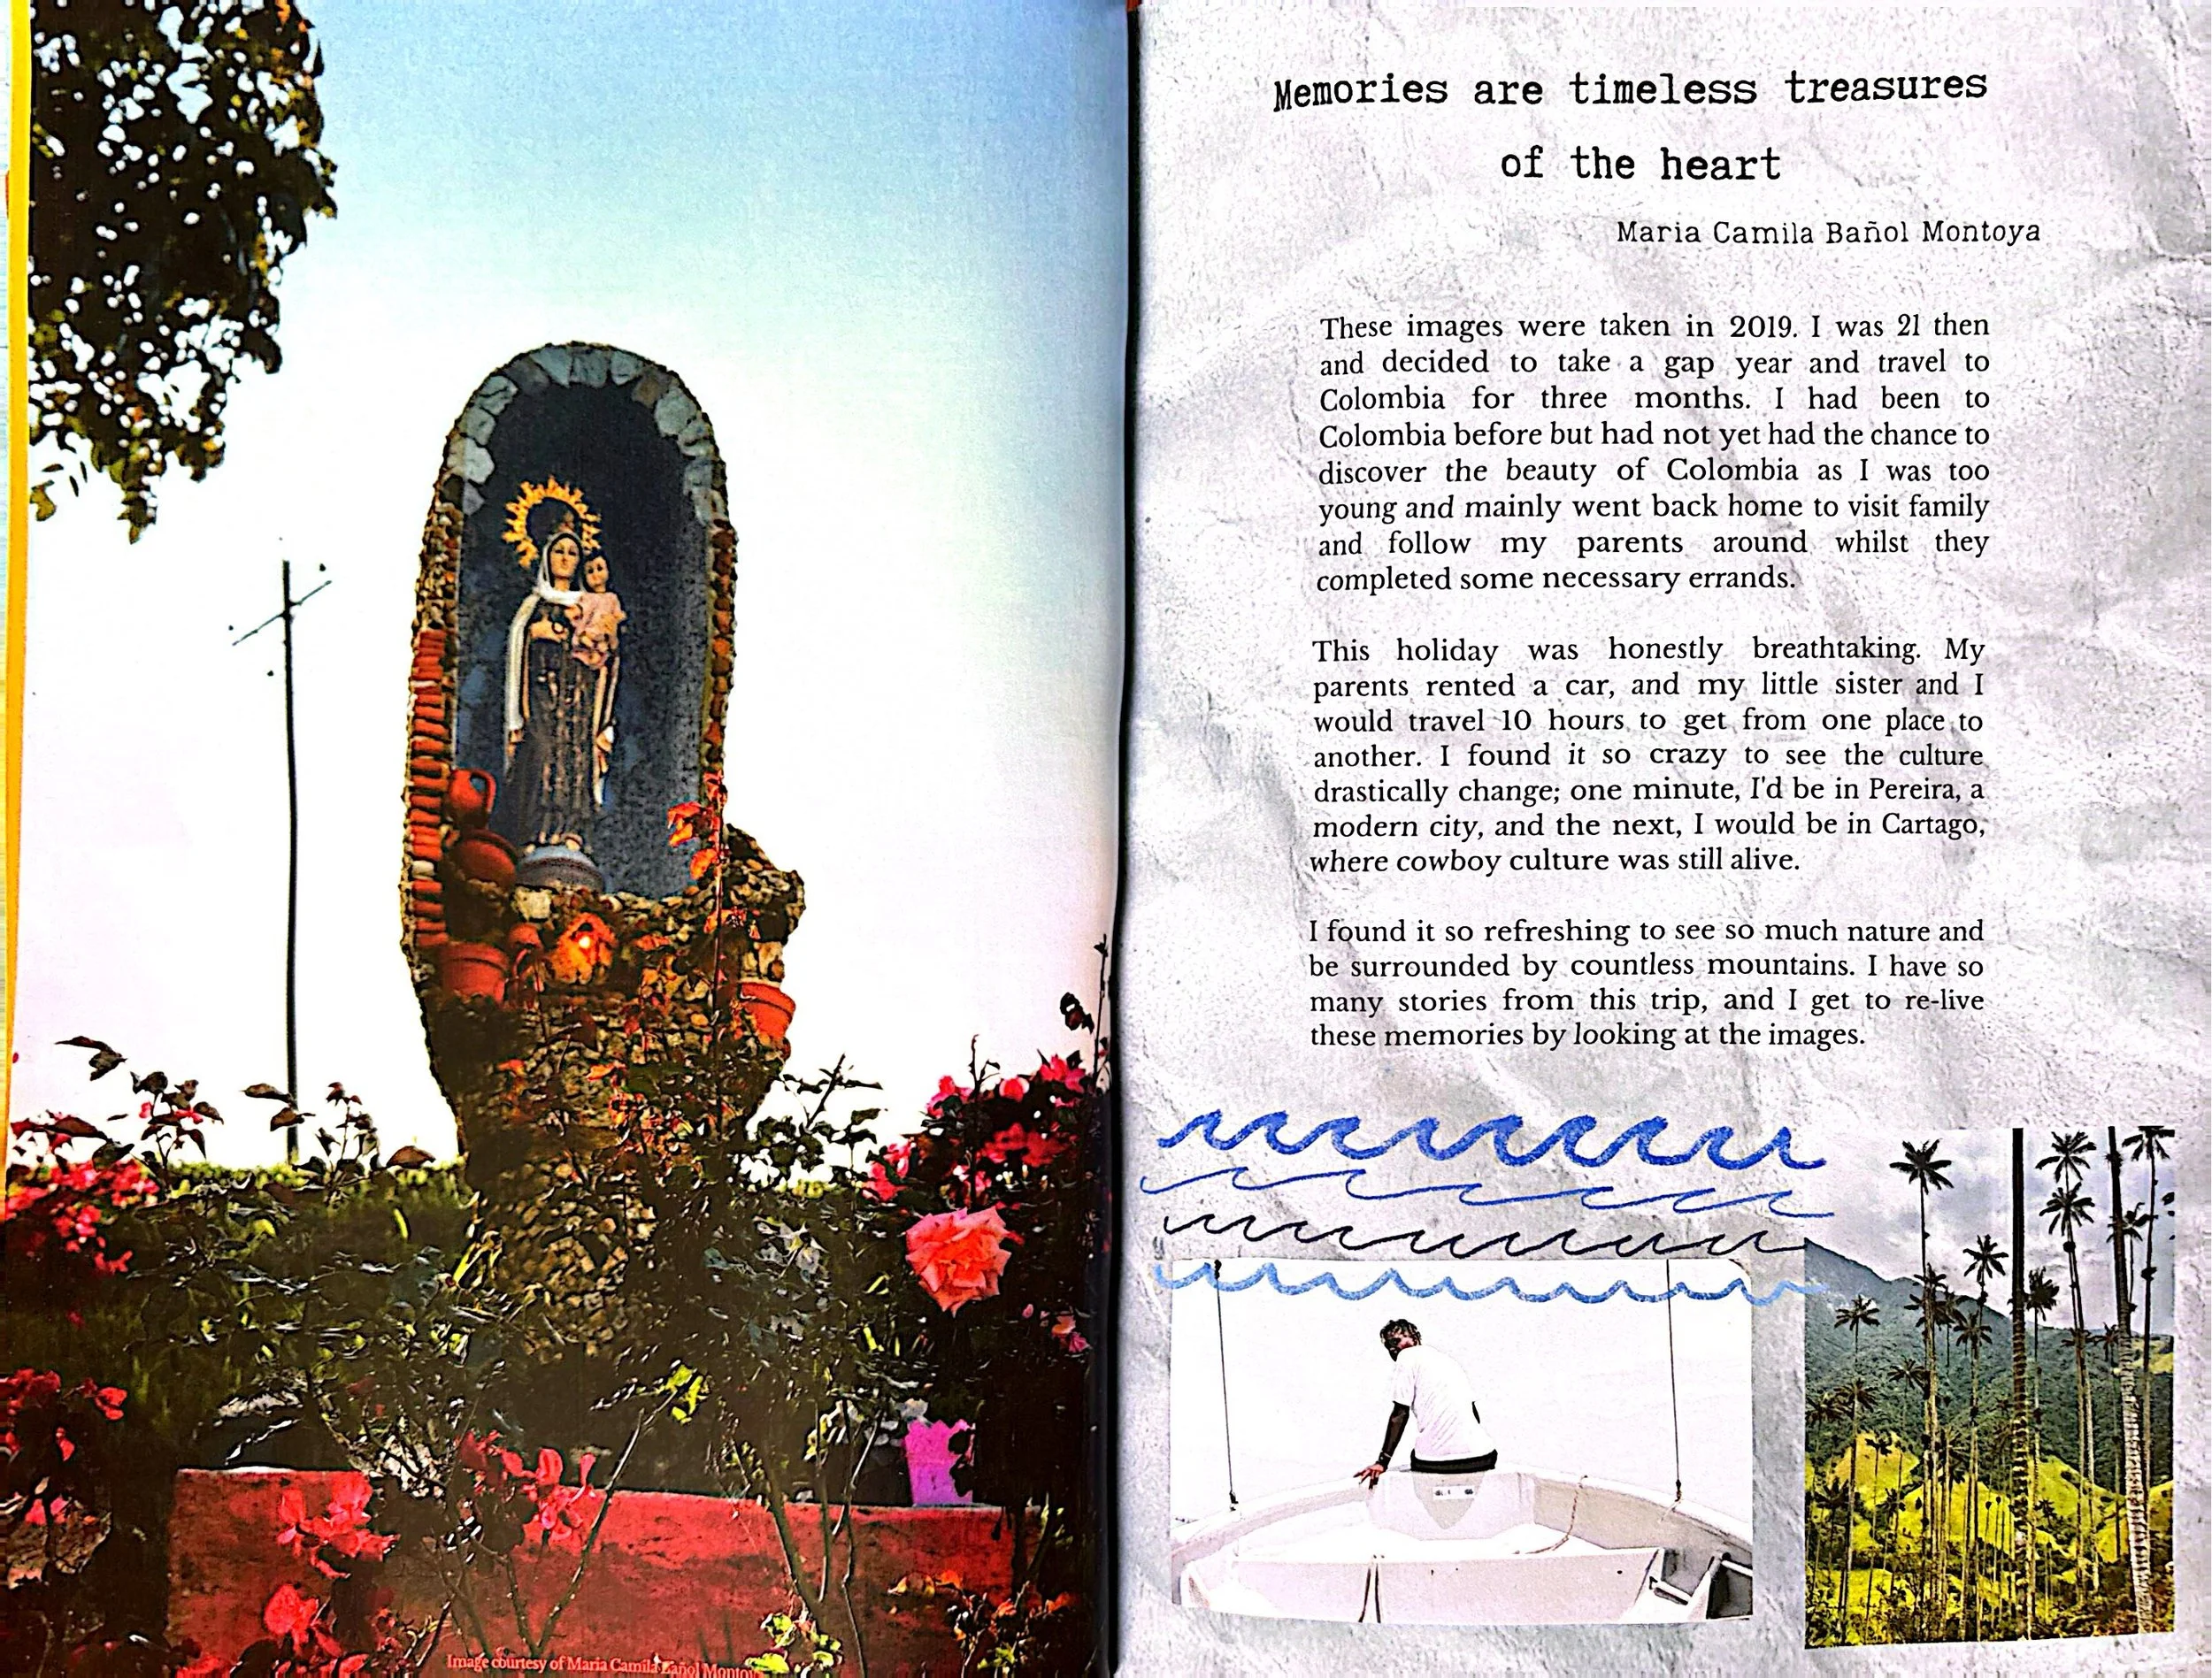 Memories are timeless treasures
of the heart
Maria Camila Bañol Montoya
These images were taken in 2019. I was 21 then
and decided to take a gap year and travel to
Colombia for three months. I had been to
Colombia before but had not yet had the chance to
discover the beauty of Colombia as I was too
young and mainly went back home to visit family
and follow my parents around whilst they
completed some necessary errands.
This holiday was honestly breathtaking. My
parents rented a car, and my little sister and I
would travel 10 hours to get from one place to
another. I found it so crazy to see the culture
drastically change; one minute, I'd be in Pereira, a
modern city, and the next, I would be in Cartago,
where cowboy culture was still alive.
I found it so refreshing to see so much nature and
be surrounded by countless mountains. I have so
many stories from this trip, and I get to re-live
these memories by looking at the images.
Image courtesy of Maria Camila Bañol Montoy